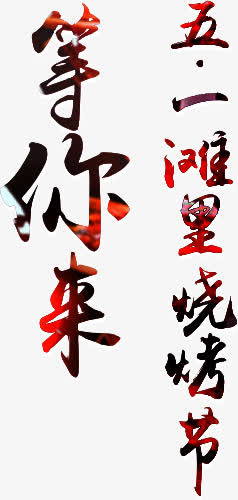 五·一滩里烧烤节
等你来